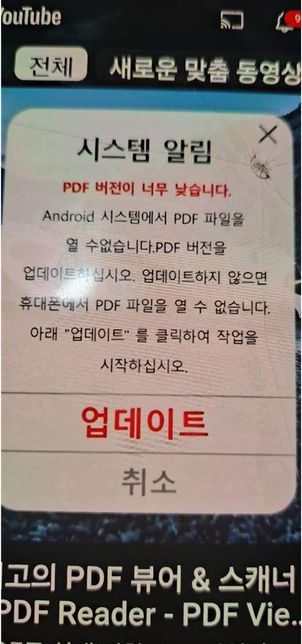 YouTube
9
전체
새로운 맞춤 동영상
시스템 알림
PDF 버전이 너무 낮습니다.
Android 시스템에서 PDF 파일을
열 수없습니다.PDF 버전을
업데이트하십시오. 업데이트하지 않으면
휴대폰에서 PDF 파일을 열 수 없습니다.
아래 "업데이트" 를 클릭하여 작업을
시작하십시오.
업데이트
취소
고의 PDF 뷰어 & 스캐너
PDF Reader - PDF Vie..